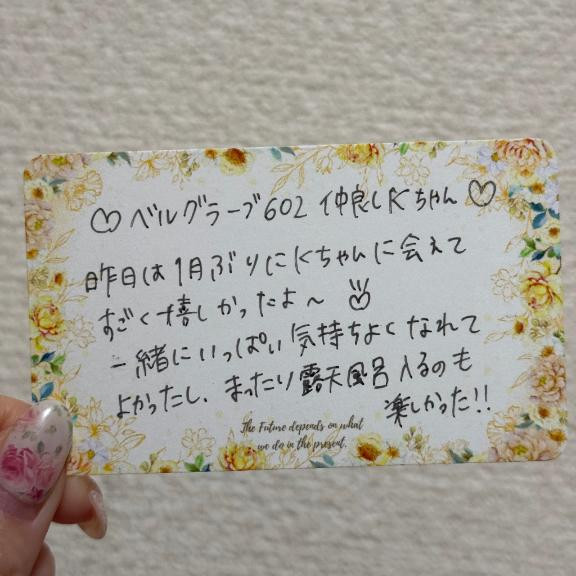 ♡ ベルグラーブ602 仲良しKちゃん ♡
昨日は1月ぶりにKちゃんに会えて
すごく嬉しかったよ〜
一緒にいっぱい気持ちよくなれて
よかったし、まったり露天風呂入るのも
楽しかった!!
The Future depends on what
we do in the present.